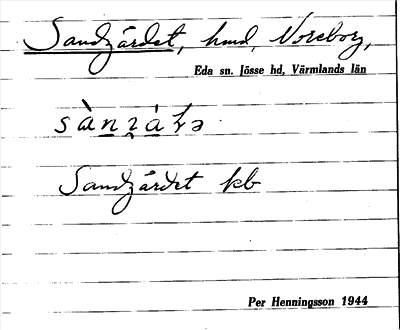 Sandgärdet, hmd, Noreborg,
Eda sn. Jösse hd, Värmlands län
Sandgärdet kb
Per Henningsson 1944